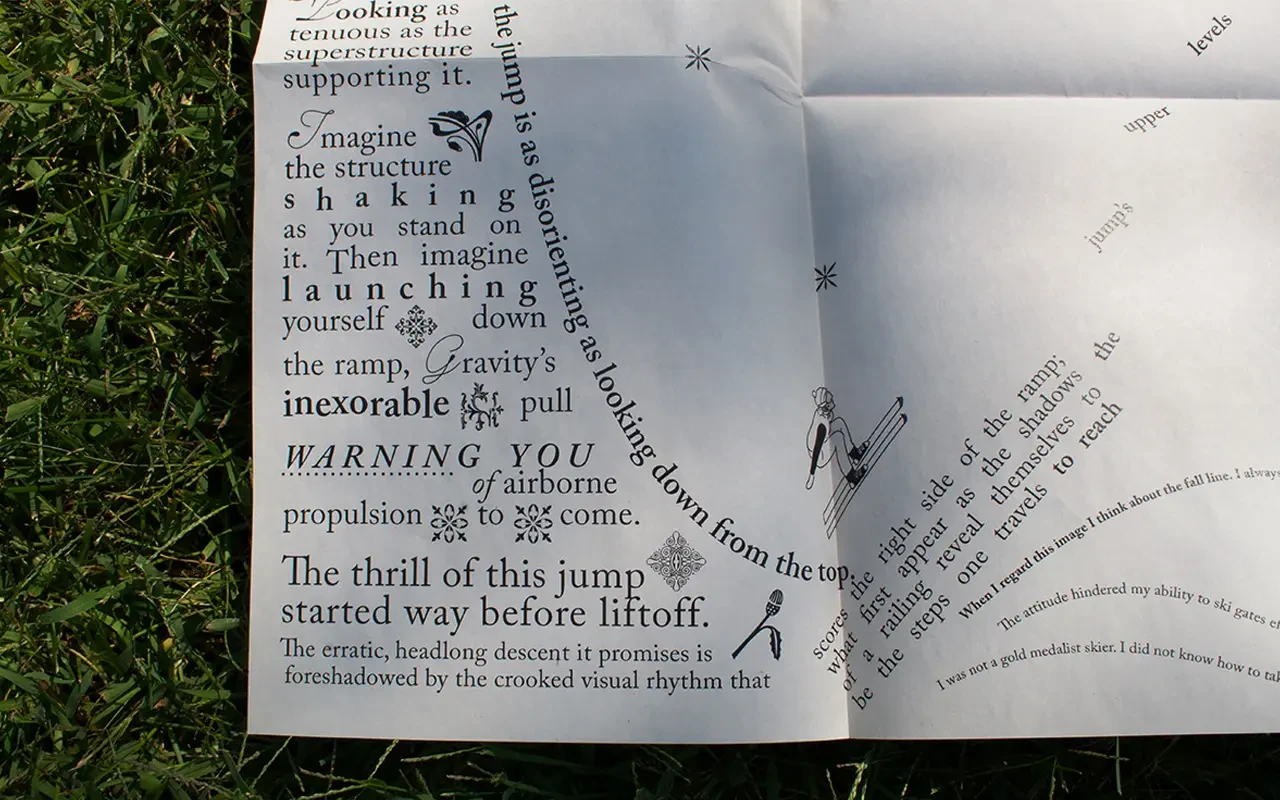 Looking as
tenuous as the
superstructure
supporting it.
Imagine
the structure
shaking
as you stand on
it. Then imagine
launching
yourself down
the ramp, Gravity's
inexorable pull
WARNING YOU
of airborne
propulsion to come.
The thrill of this jump
started way before liftoff.
The erratic, headlong descent it promises is
foreshadowed by the crooked visual rhythm that
the jump is as disorienting as looking down from the top.
scores the right side of the ramp;
what first appear as the shadows the
of a railing reveal themselves to
be the steps one travels to reach
jump's
upper
levels
When I regard this image I think about the fall line. I always
The attitude hindered my ability to ski gates
I was not a gold medalist skier. I did not know how to